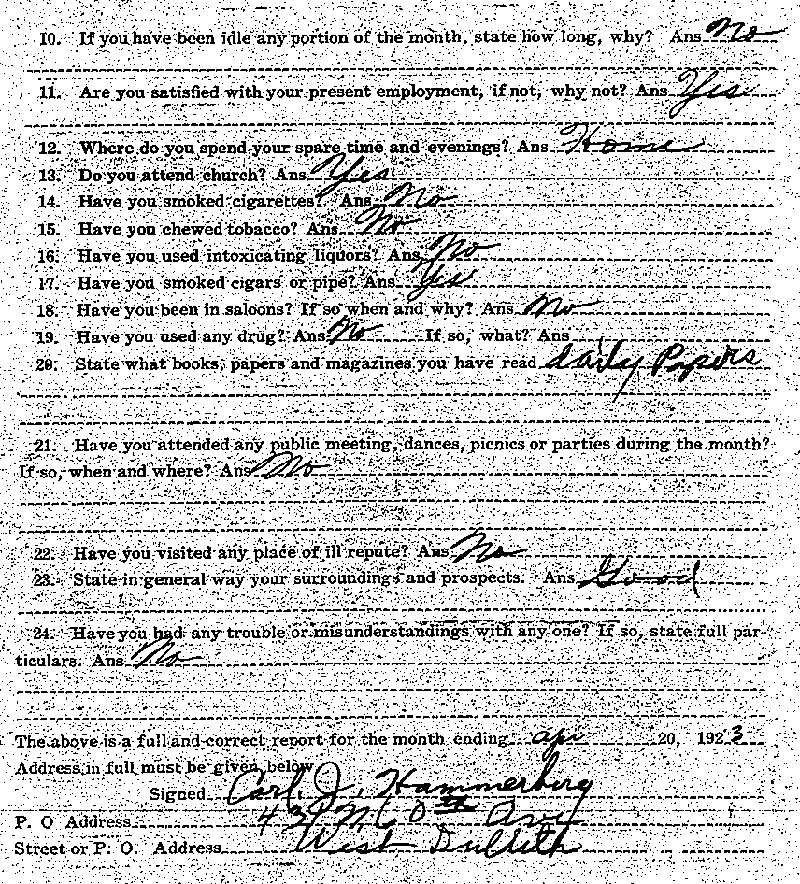 10. If you have been idle any portion of the month, state how long, why? Ans No
11. Are you satisfied with your present employment, if not, why not? Ans Yes
12. Where do you spend your spare time and evenings? Ans Home
13. Do you attend church? Ans Yes
14. Have you smoked cigarettes? Ans No
15. Have you chewed tobacco? Ans No
16. Have you used intoxicating liquors? Ans No
17. Have you smoked cigars or pipe? Ans Yes
18. Have you been in saloons? If so when and why? Ans No
19. Have you used any drug? Ans No If so, what? Ans
20. State what books, papers and magazines you have read daily Papers
21. Have you attended any public meeting, dances, picnics or parties during the month?
If so, when and where? Ans No
22. Have you visited any place of ill repute? Ans No
23. State in general way your surroundings and prospects. Ans Good
24. Have you had any trouble or misunderstandings with any one? If so, state full par-
ticulars. Ans No
The above is a full and correct report for the month ending apr 20, 1923
Address in full must be given below
Signed Carl J. Hammerberg
P. O Address Ave
Street or P. O. Address West Duluth